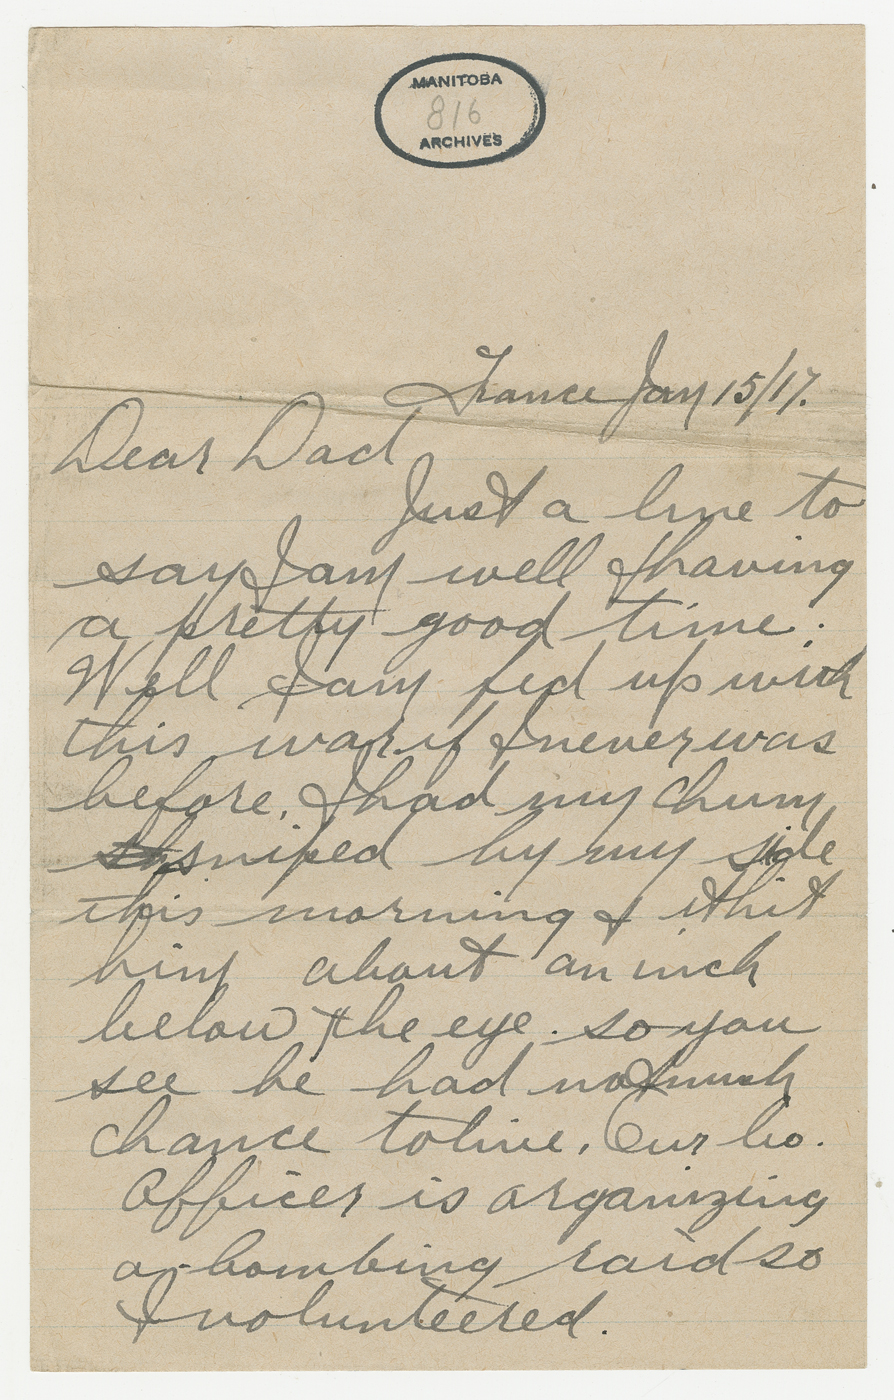 MANITOBA
816
ARCHIVES
France Jan 15/17.
Dear Dad
Just a line to
say I am well & having
a pretty good time.
Well I am fed up with
this war if I never was
before. I had my chum
sniped by my side
this morning & it hit
him about an inch
below the eye. so you
see he had not much
chance to live. Our Co.
Officer is organizing
a bombing raid so
I volunteered.